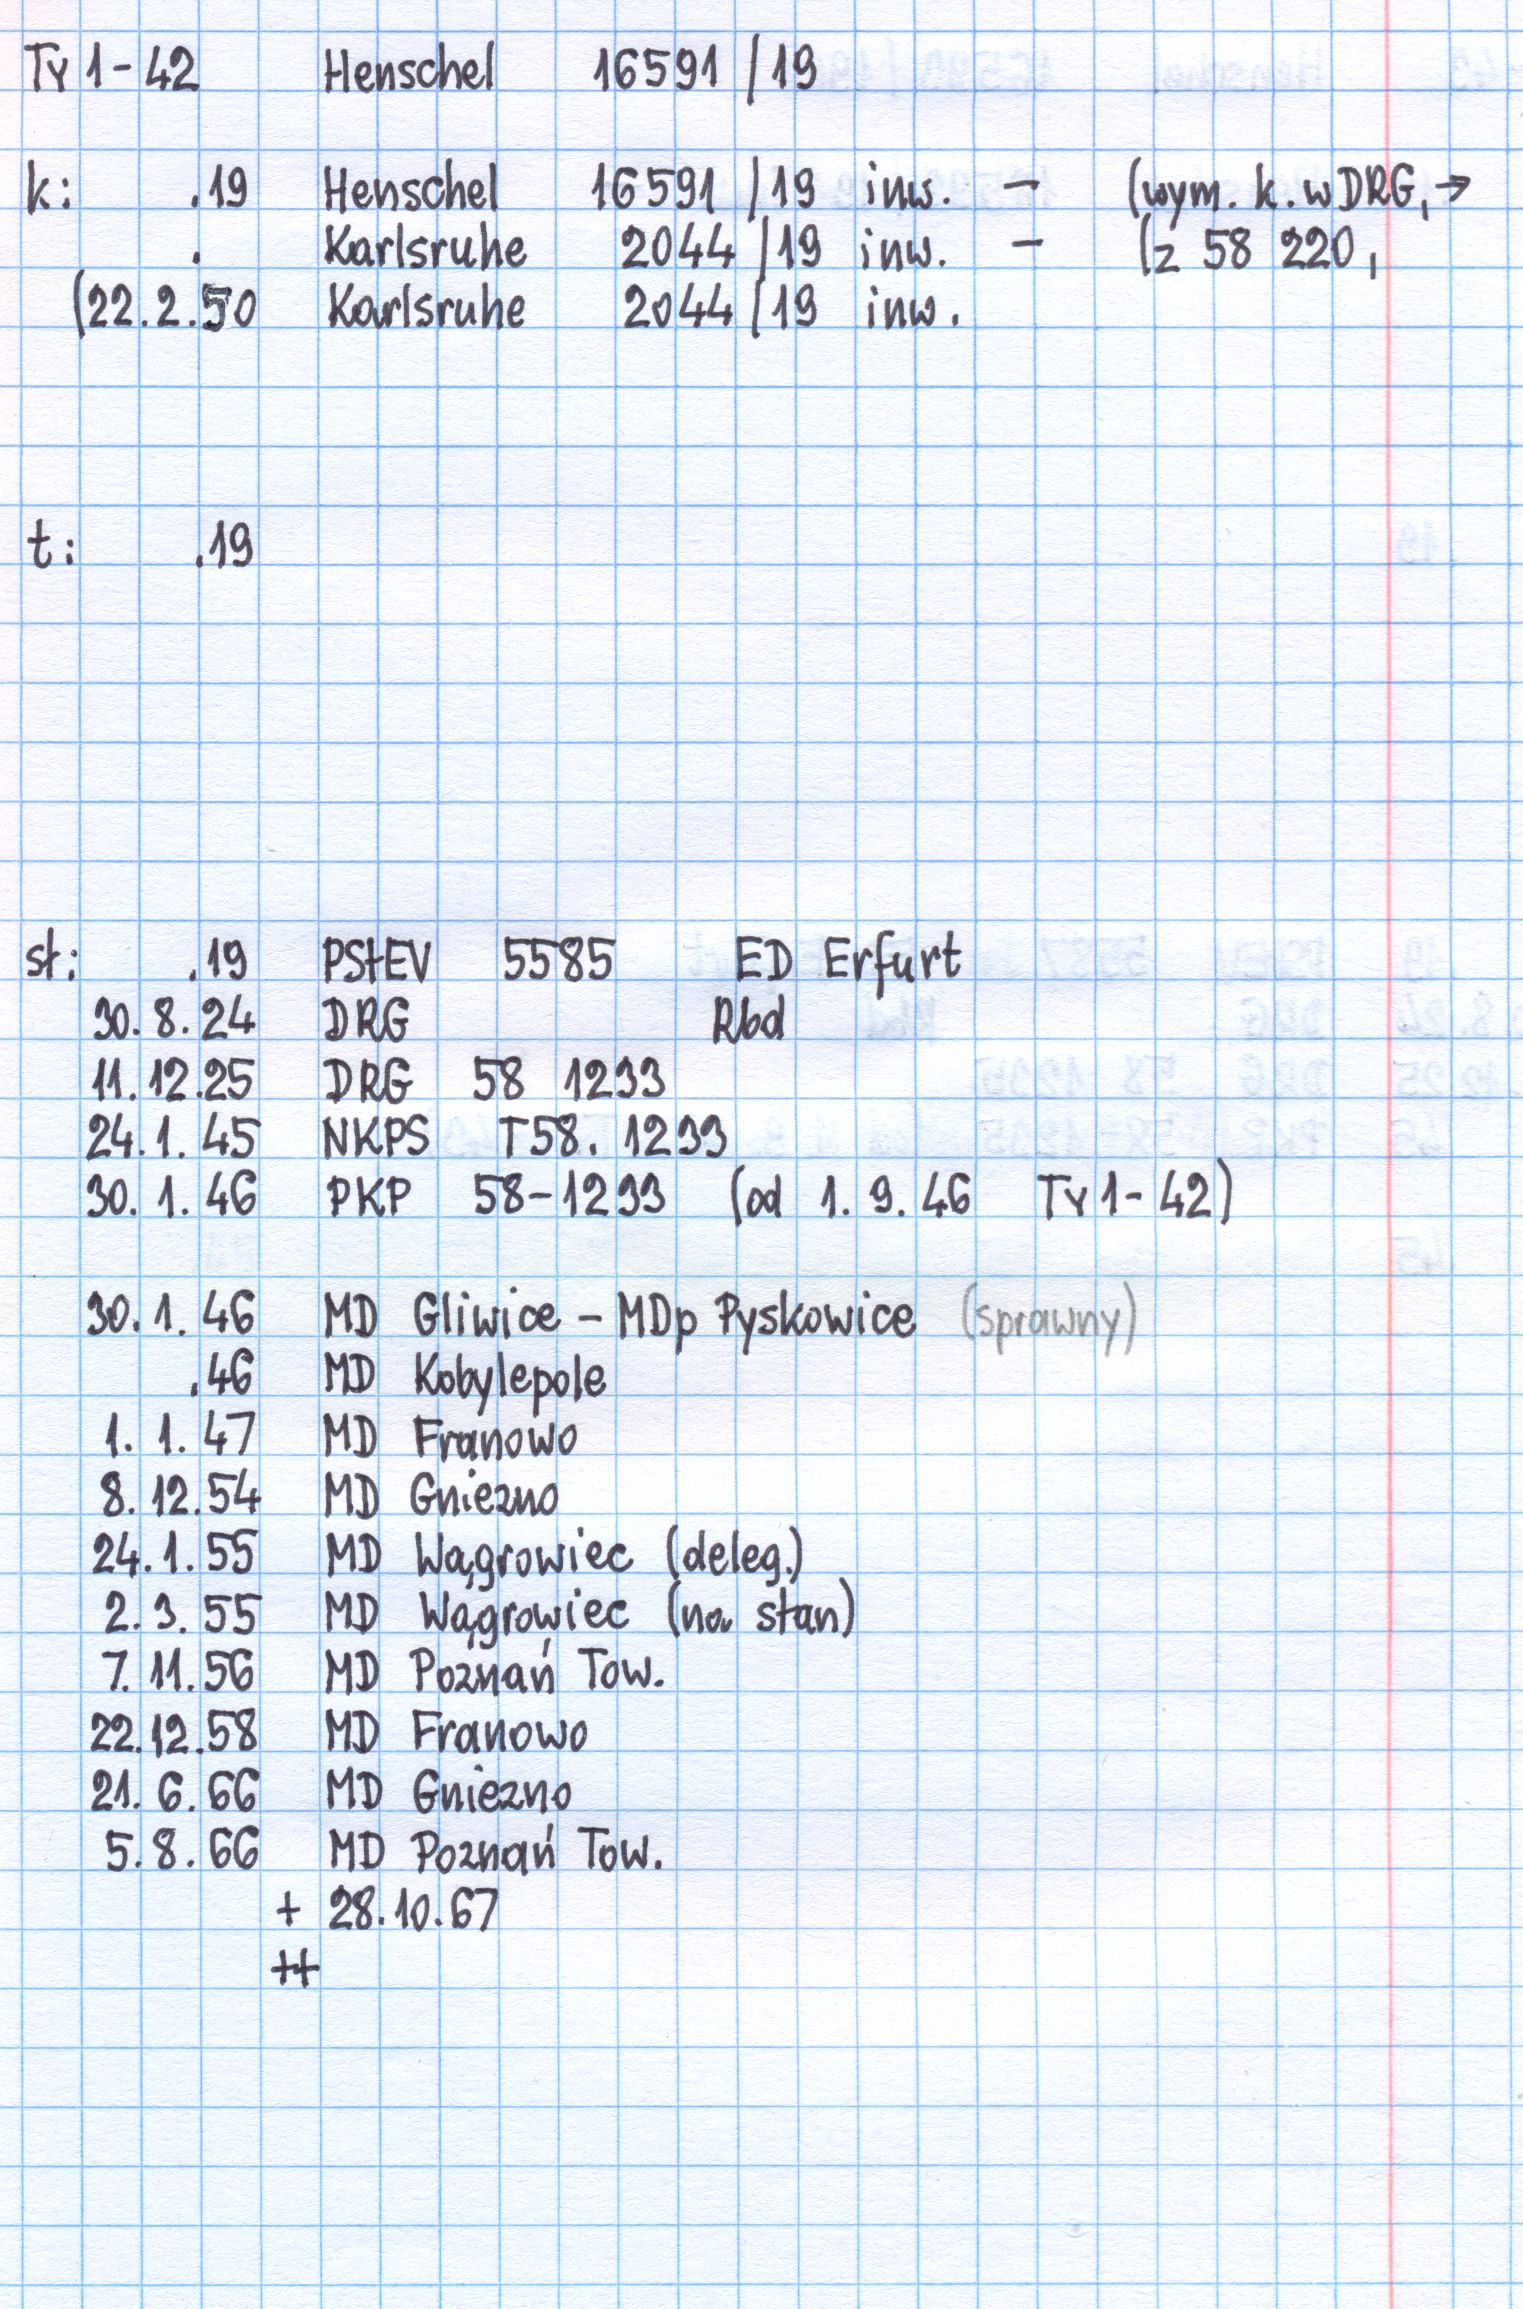 Ty 1-42 Henschel 16591/19
k: .19 Henschel 16591/19 inw. - (wym. k. w DRG, →
. Karlsruhe 2044/19 inw. - (z 58 220,
(22.2.50 Karlsruhe 2044/19 inw.
t: .19
sł: .19 PStEV 5585 ED Erfurt
30.8.24 DRG Rbd
11.12.25 DRG 58 1233
24.1.45 NKPS T58.1233
30.1.46 PKP 58-1233 (od 1.9.46 Ty 1-42)
30.1.46 MD Gliwice - MDp Pyskowice (sprawny)
.46 MD Kobylepole
1.1.47 MD Franowo
8.12.54 MD Gniezno
24.1.55 MD Wągrowiec (deleg.)
2.3.55 MD Wągrowiec (na stan)
7.11.56 MD Poznań Tow.
22.12.58 MD Franowo
21.6.66 MD Gniezno
5.8.66 MD Poznań Tow.
+ 28.10.67
++